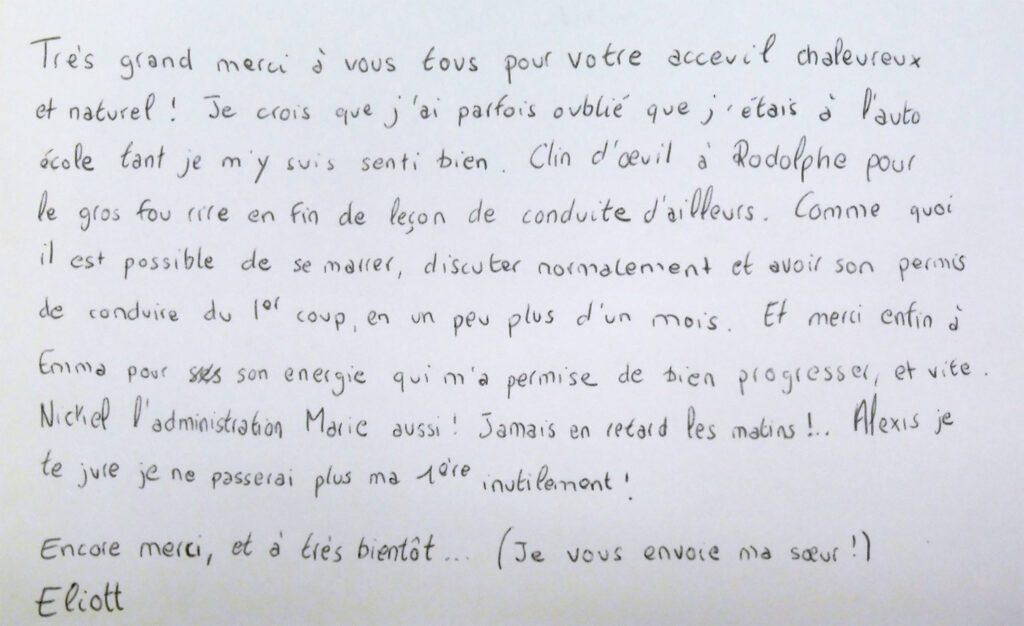 Très grand merci à vous tous pour votre acceuil chaleureux
et naturel ! Je crois que j'ai parfois oublié que j'étais à l'auto
école tant je m'y suis senti bien. Clin d'œuil à Rodolphe pour
le gros fou rire en fin de leçon de conduite d'ailleurs. Comme quoi
il est possible de se marrer, discuter normalement et avoir son permis
de conduire du 1er coup, en un peu plus d'un mois. Et merci enfin à
Emma pour son energie qui m'a permise de bien progresser, et vite.
Nickel l'administration Marie aussi ! Jamais en retard les matins !.. Alexis je
te jure je ne passerai plus ma 1ère inutilement !
Encore merci, et à très bientôt... (Je vous envoie ma sœur !)
Eliott